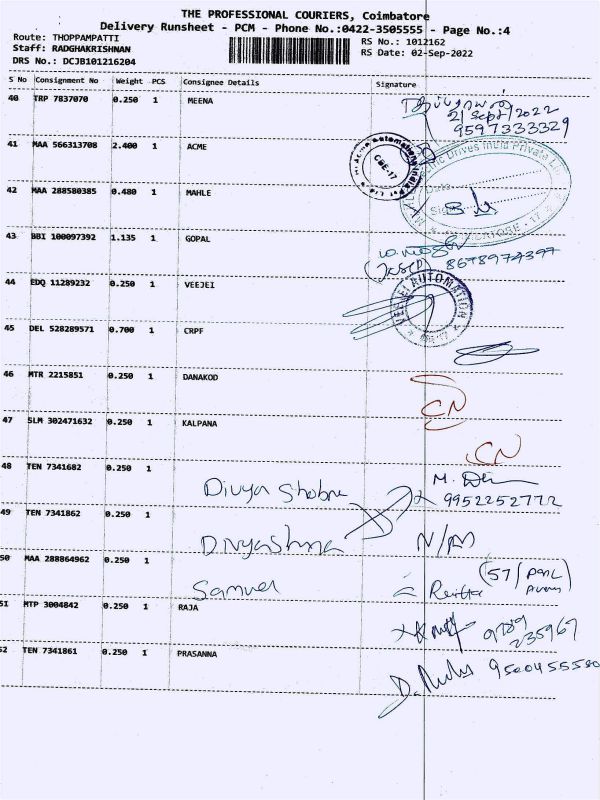 THE PROFESSIONAL COURIERS, Coimbatore
Delivery Runsheet - PCM - Phone No.:0422-3505555 - Page No.:4
Route: THOPPAMPATTI
Staff: RADGHAKRISHNAN
DRS No.: DCJB101216204
RS No.: 1012162
RS Date: 02-Sep-2022
S No Consignment No Weight PCS Consignee Details Signature
40 TRP 7837070 0.250 1 MEENA
2/Sept/2022
9597333329
41 MAA 566313708 2.400 1 ACME
CBE-17
42 MAA 288580385 0.480 1 MAHLE
Date
43 BBI 100097392 1.135 1 GOPAL
8678974397
44 EDQ 11289232 0.250 1 VEEJEI
45 DEL 528289571 0.700 1 CRPF
46 MTR 2215851 0.250 1 DANAKOD
CN
47 SLM 302471632 0.250 1 KALPANA
CN
48 TEN 7341682 0.250 1 Divya Shobna
9952252772
49 TEN 7341862 0.250 1
N/A
50 MAA 288864962 0.250 1 Samuel
51 MTP 3004842 0.250 1 RAJA
9789
235967
52 TEN 7341861 0.250 1 PRASANNA
9500455580